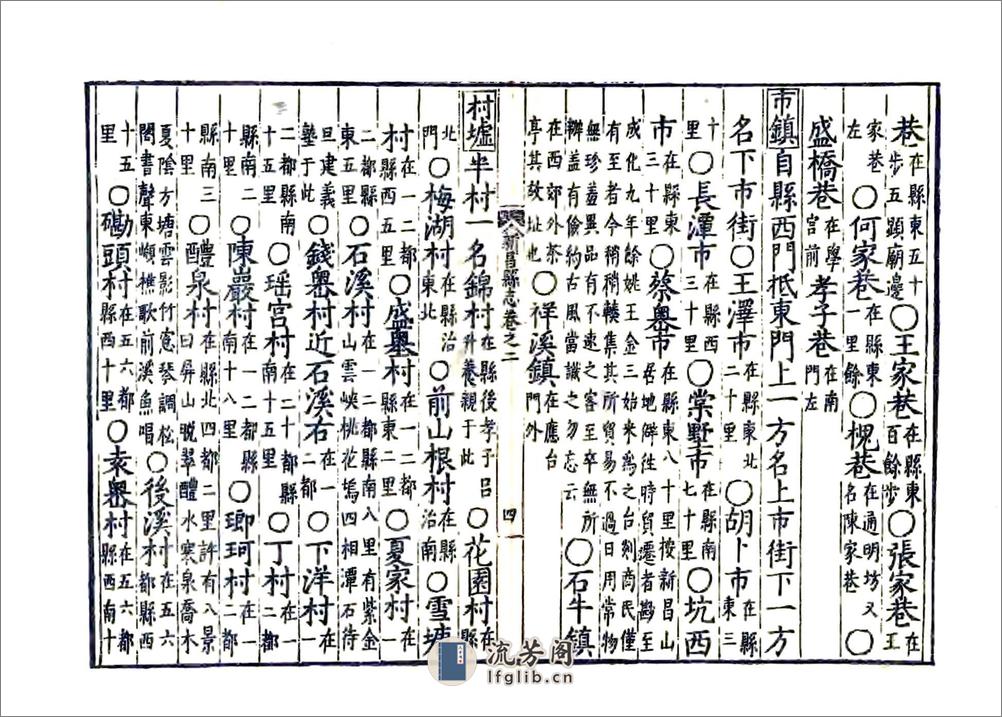 巷在縣東五十步五顯廟邊○王家巷在縣東百餘步○張家巷在王
家巷左○何家巷在縣東一里餘○槐巷在通明坊又名陳家巷○
盛橋巷在學宮前孝子巷在南門左
市鎮自縣西門抵東門上一方名上市街下一方
名下市街○王澤市在縣東北二十里○胡卜市在縣東三
十里○長潭市在縣西三十里○棠野市在縣南七十里○坑西
市在縣東三十里○蔡嶴市在縣東八十里按新昌山居地僻徃時貿遷者尠至
成化九年餘姚王金三始來爲之台剡商民僅有至者今稍稍輳集其所貿易不過日用常物
無珍葢異品有不速之客至卒無所辦葢有儉約古風當識之勿忘云○石牛鎮
在西郊外茶亭其故址也○祥溪鎮在應台門外
新昌縣志卷之二 四
村墟半村一名錦村在縣後孝子呂升養親于此○花園村在縣
北門○梅湖村在縣治東北○前山根村在縣治南○雪塘
村在一二都縣西五里○盛嶴村在一二都縣東二里○夏家村在一
二都縣東五里○石溪村在一二都縣南八里有紫金山雲峽桃花塢四相潭石待
旦建義塾于此○錢嶴村近石溪右在一二都○下洋村在一
二都縣南十五里○瑶宮村在二十都縣南十五里○丁村在一二都
縣南二十里○陳巖村在一二都縣南十八里○瑯珂村在一二都
縣南三十里○醴泉村在縣北四都二里許有八景曰屏山晚翠醴水寒泉喬木
夏陰方塘雲影竹窻琴調松閣書聲東巔樵歌前溪魚唱○後溪村在五六都縣西
十五里○磡頭村在五六都縣西十里○袁嶴村在五六都縣西南十
流芳阁
lfglib.cn